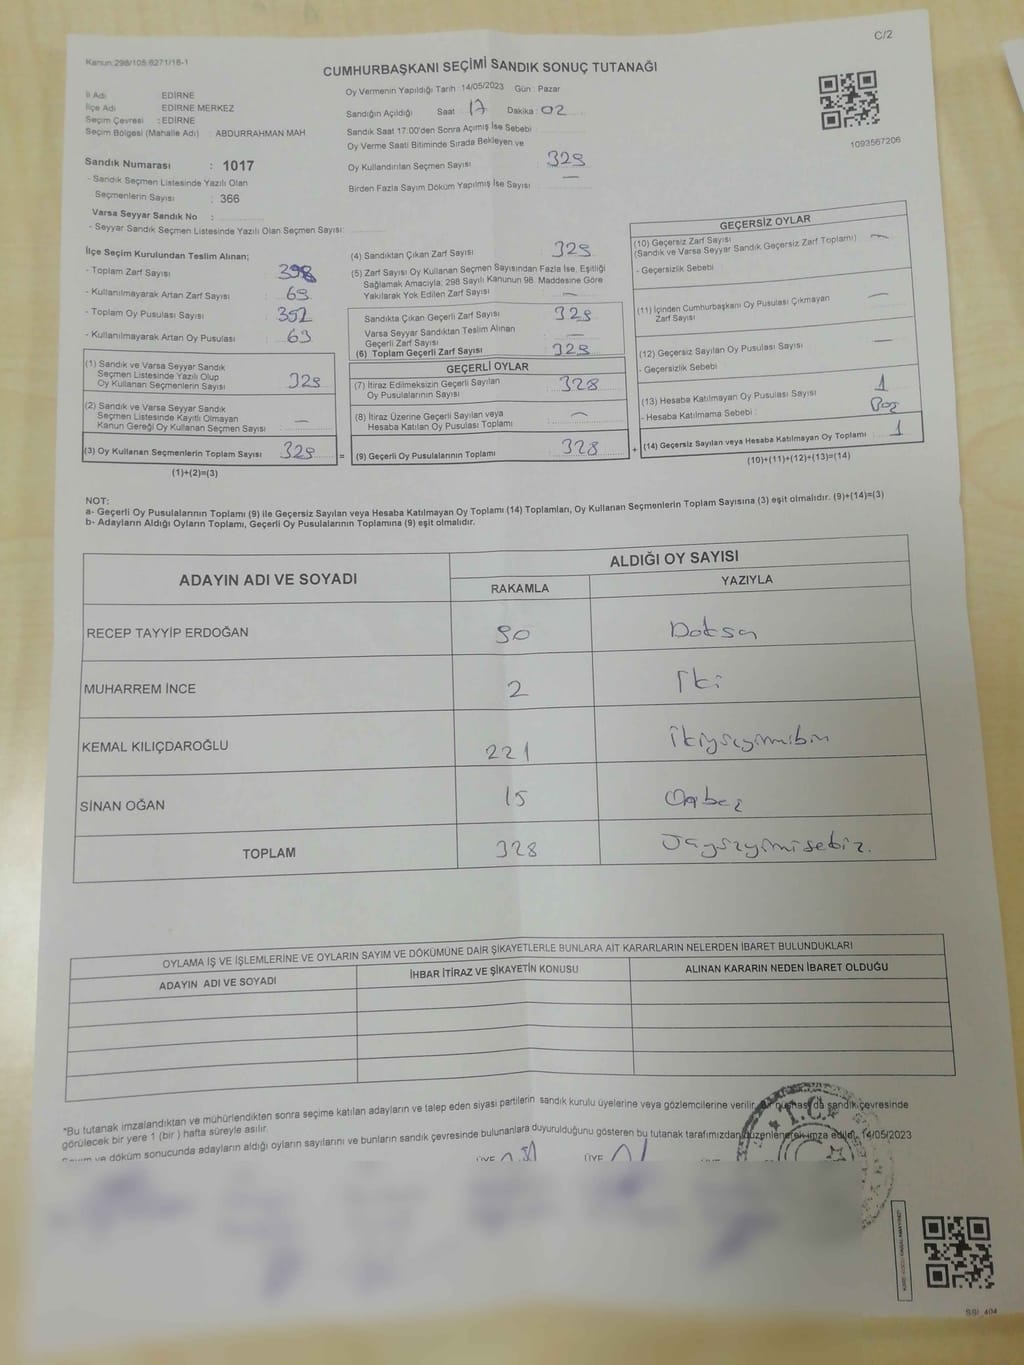 C/2
Kanun:298/105,6271/16-1
CUMHURBAŞKANI SEÇİMİ SANDIK SONUÇ TUTANAĞI
İl Adı EDİRNE
İlçe Adı EDİRNE MERKEZ
Seçim Çevresi : EDİRNE
Seçim Bölgesi (Mahalle Adı) : ABDURRAHMAN MAH
Sandık Numarası : 1017
- Sandık Seçmen Listesinde Yazılı Olan
Seçmenlerin Sayısı : 366
Varsa Seyyar Sandık No :
- Seyyar Sandık Seçmen Listesinde Yazılı Olan Seçmen Sayısı:
Oy Vermenin Yapıldığı Tarih :14/05/2023 Gün : Pazar
Sandığın Açıldığı Saat : 17 Dakika : 02
Sandık Saat 17:00'den Sonra Açılmış İse Sebebi
Oy Verme Saati Bitiminde Sırada Bekleyen ve
Oy Kullandırılan Seçmen Sayısı : 329
Birden Fazla Sayım Döküm Yapılmış İse Sayısı : —
1093567206
İlçe Seçim Kurulundan Teslim Alınan;
- Toplam Zarf Sayısı : 398
- Kullanılmayarak Artan Zarf Sayısı : 69
- Toplam Oy Pusulası Sayısı :
- Kullanılmayarak Artan Oy Pusulası : 63
(1) Sandık ve Varsa Seyyar Sandık
Seçmen Listesinde Yazılı Olup
Oy Kullanan Seçmenlerin Sayısı : 329
(2) Sandık ve Varsa Seyyar Sandık
Seçmen Listesinde Kayıtlı Olmayan
Kanun Gereği Oy Kullanan Seçmen Sayısı : —
(3) Oy Kullanan Seçmenlerin Toplam Sayısı : 329 =
(1)+(2)=(3)
(4) Sandıktan Çıkan Zarf Sayısı : 329
(5) Zarf Sayısı Oy Kullanan Seçmen Sayısından Fazla İse, Eşitliği
Sağlamak Amacıyla; 298 Sayılı Kanunun 98. Maddesine Göre
Yakılarak Yok Edilen Zarf Sayısı : —
Sandıkta Çıkan Geçerli Zarf Sayısı : 329
Varsa Seyyar Sandıktan Teslim Alınan
Geçerli Zarf Sayısı : —
(6) Toplam Geçerli Zarf Sayısı : 329
GEÇERLİ OYLAR
(7) İtiraz Edilmeksizin Geçerli Sayılan
Oy Pusulalarının Sayısı : 328
(8) İtiraz Üzerine Geçerli Sayılan veya
Hesaba Katılan Oy Pusulası Toplamı : —
(9) Geçerli Oy Pusulalarının Toplamı : 328 +
GEÇERSİZ OYLAR
(10) Geçersiz Zarf Sayısı : —
(Sandık ve Varsa Seyyar Sandık Geçersiz Zarf Toplamı)
- Geçersizlik Sebebi :
(11) İçinden Cumhurbaşkanı Oy Pusulası Çıkmayan
Zarf Sayısı : —
(12) Geçersiz Sayılan Oy Pusulası Sayısı : —
- Geçersizlik Sebebi
(13) Hesaba Katılmayan Oy Pusulası Sayısı : 1
- Hesaba Katılmama Sebebi : Boş
(14) Geçersiz Sayılan veya Hesaba Katılmayan Oy Toplamı : 1
(10)+(11)+(12)+(13)=(14)
NOT:
a- Geçerli Oy Pusulalarının Toplamı (9) ile Geçersiz Sayılan veya Hesaba Katılmayan Oy Toplamı (14) Toplamları, Oy Kullanan Seçmenlerin Toplam Sayısına (3) eşit olmalıdır. (9)+(14)=(3)
b- Adayların Aldığı Oyların Toplamı, Geçerli Oy Pusulalarının Toplamına (9) eşit olmalıdır.
ADAYIN ADI VE SOYADI ALDIĞI OY SAYISI
RAKAMLA YAZIYLA
RECEP TAYYİP ERDOĞAN 90 Doksan
MUHARREM İNCE 2 İki
KEMAL KILIÇDAROĞLU 221 İkiyüzyirmibir
SİNAN OĞAN 15 Onbeş
TOPLAM 328 Üçyüzyirmisekiz.
OYLAMA İŞ VE İŞLEMLERİNE VE OYLARIN SAYIM VE DÖKÜMÜNE DAİR ŞİKAYETLERLE BUNLARA AİT KARARLARIN NELERDEN İBARET BULUNDUKLARI
ADAYIN ADI VE SOYADI İHBAR İTİRAZ VE ŞİKAYETİN KONUSU ALINAN KARARIN NEDEN İBARET OLDUĞU
*Bu tutanak imzalandıktan ve mühürlendikten sonra seçime katılan adayların ve talep eden siyasi partilerin sandık kurulu üyelerine veya gözlemcilerine verilir, Bir nüshası da sandık çevresinde
görülecek bir yere 1 (bir ) hafta süreyle asılır.
Sayım ve döküm sonucunda adayların aldığı oyların sayılarını ve bunların sandık çevresinde bulunanlara duyurulduğunu gösteren bu tutanak tarafımızdan düzenlenerek imza edildi. 14/05/2023
ÜYE ÜYE ÜYE
T.C.
SSI_404